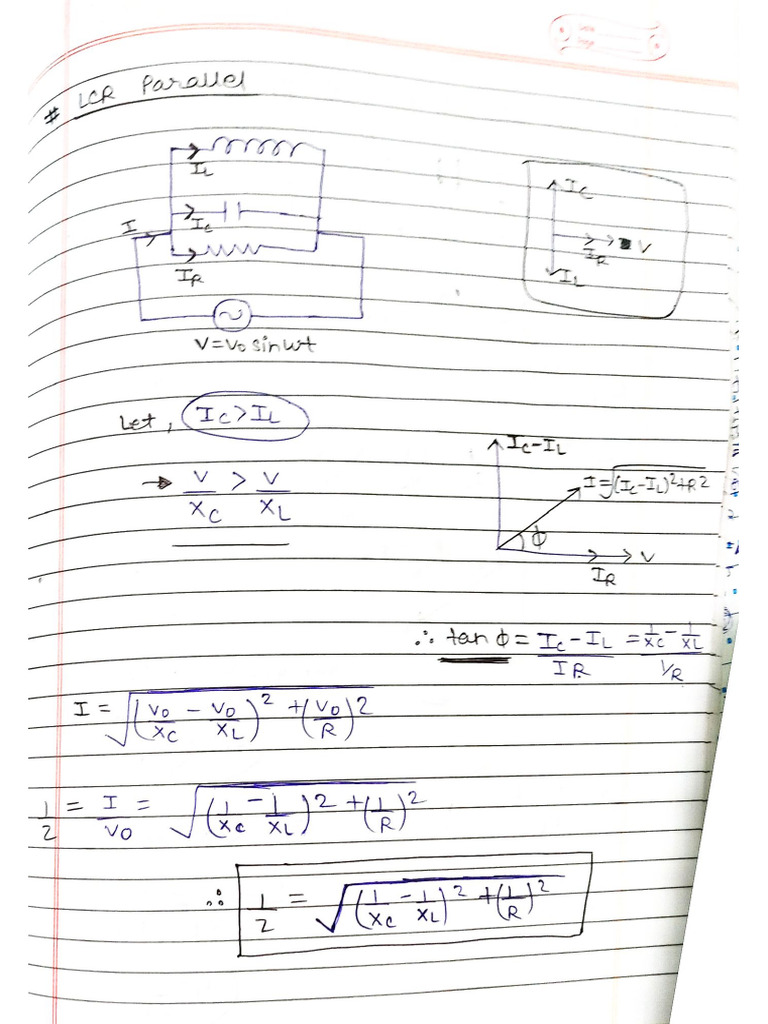 # LCR Parallel
I_L
I_C
I
I_R
V=V₀ sinωt
I_C
V
I_R
I_L
Let, I_C>I_L
→ V/X_C > V/X_L
I_C-I_L
I=√(I_C-I_L)²+R²
ϕ
V
I_R
∴ tanϕ = (I_C-I_L)/I_R = (1/X_C - 1/X_L)/(1/R)
I = √(V₀/X_C - V₀/X_L)² + (V₀/R)²
1/Z = I/V₀ = √(1/X_C - 1/X_L)² + (1/R)²
∴ 1/Z = √(1/X_C - 1/X_L)² + (1/R)²